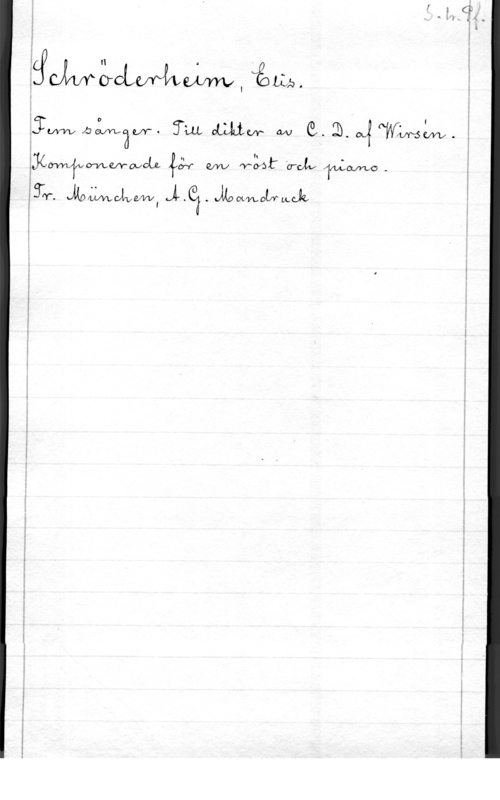 S. br. Pf.
Schröderheim, Elis.
Fem sånger. Till dikter av C. D. af Wirsén.
Komponerade för en röst och piano.
Tr. München, A.G. Mandruck